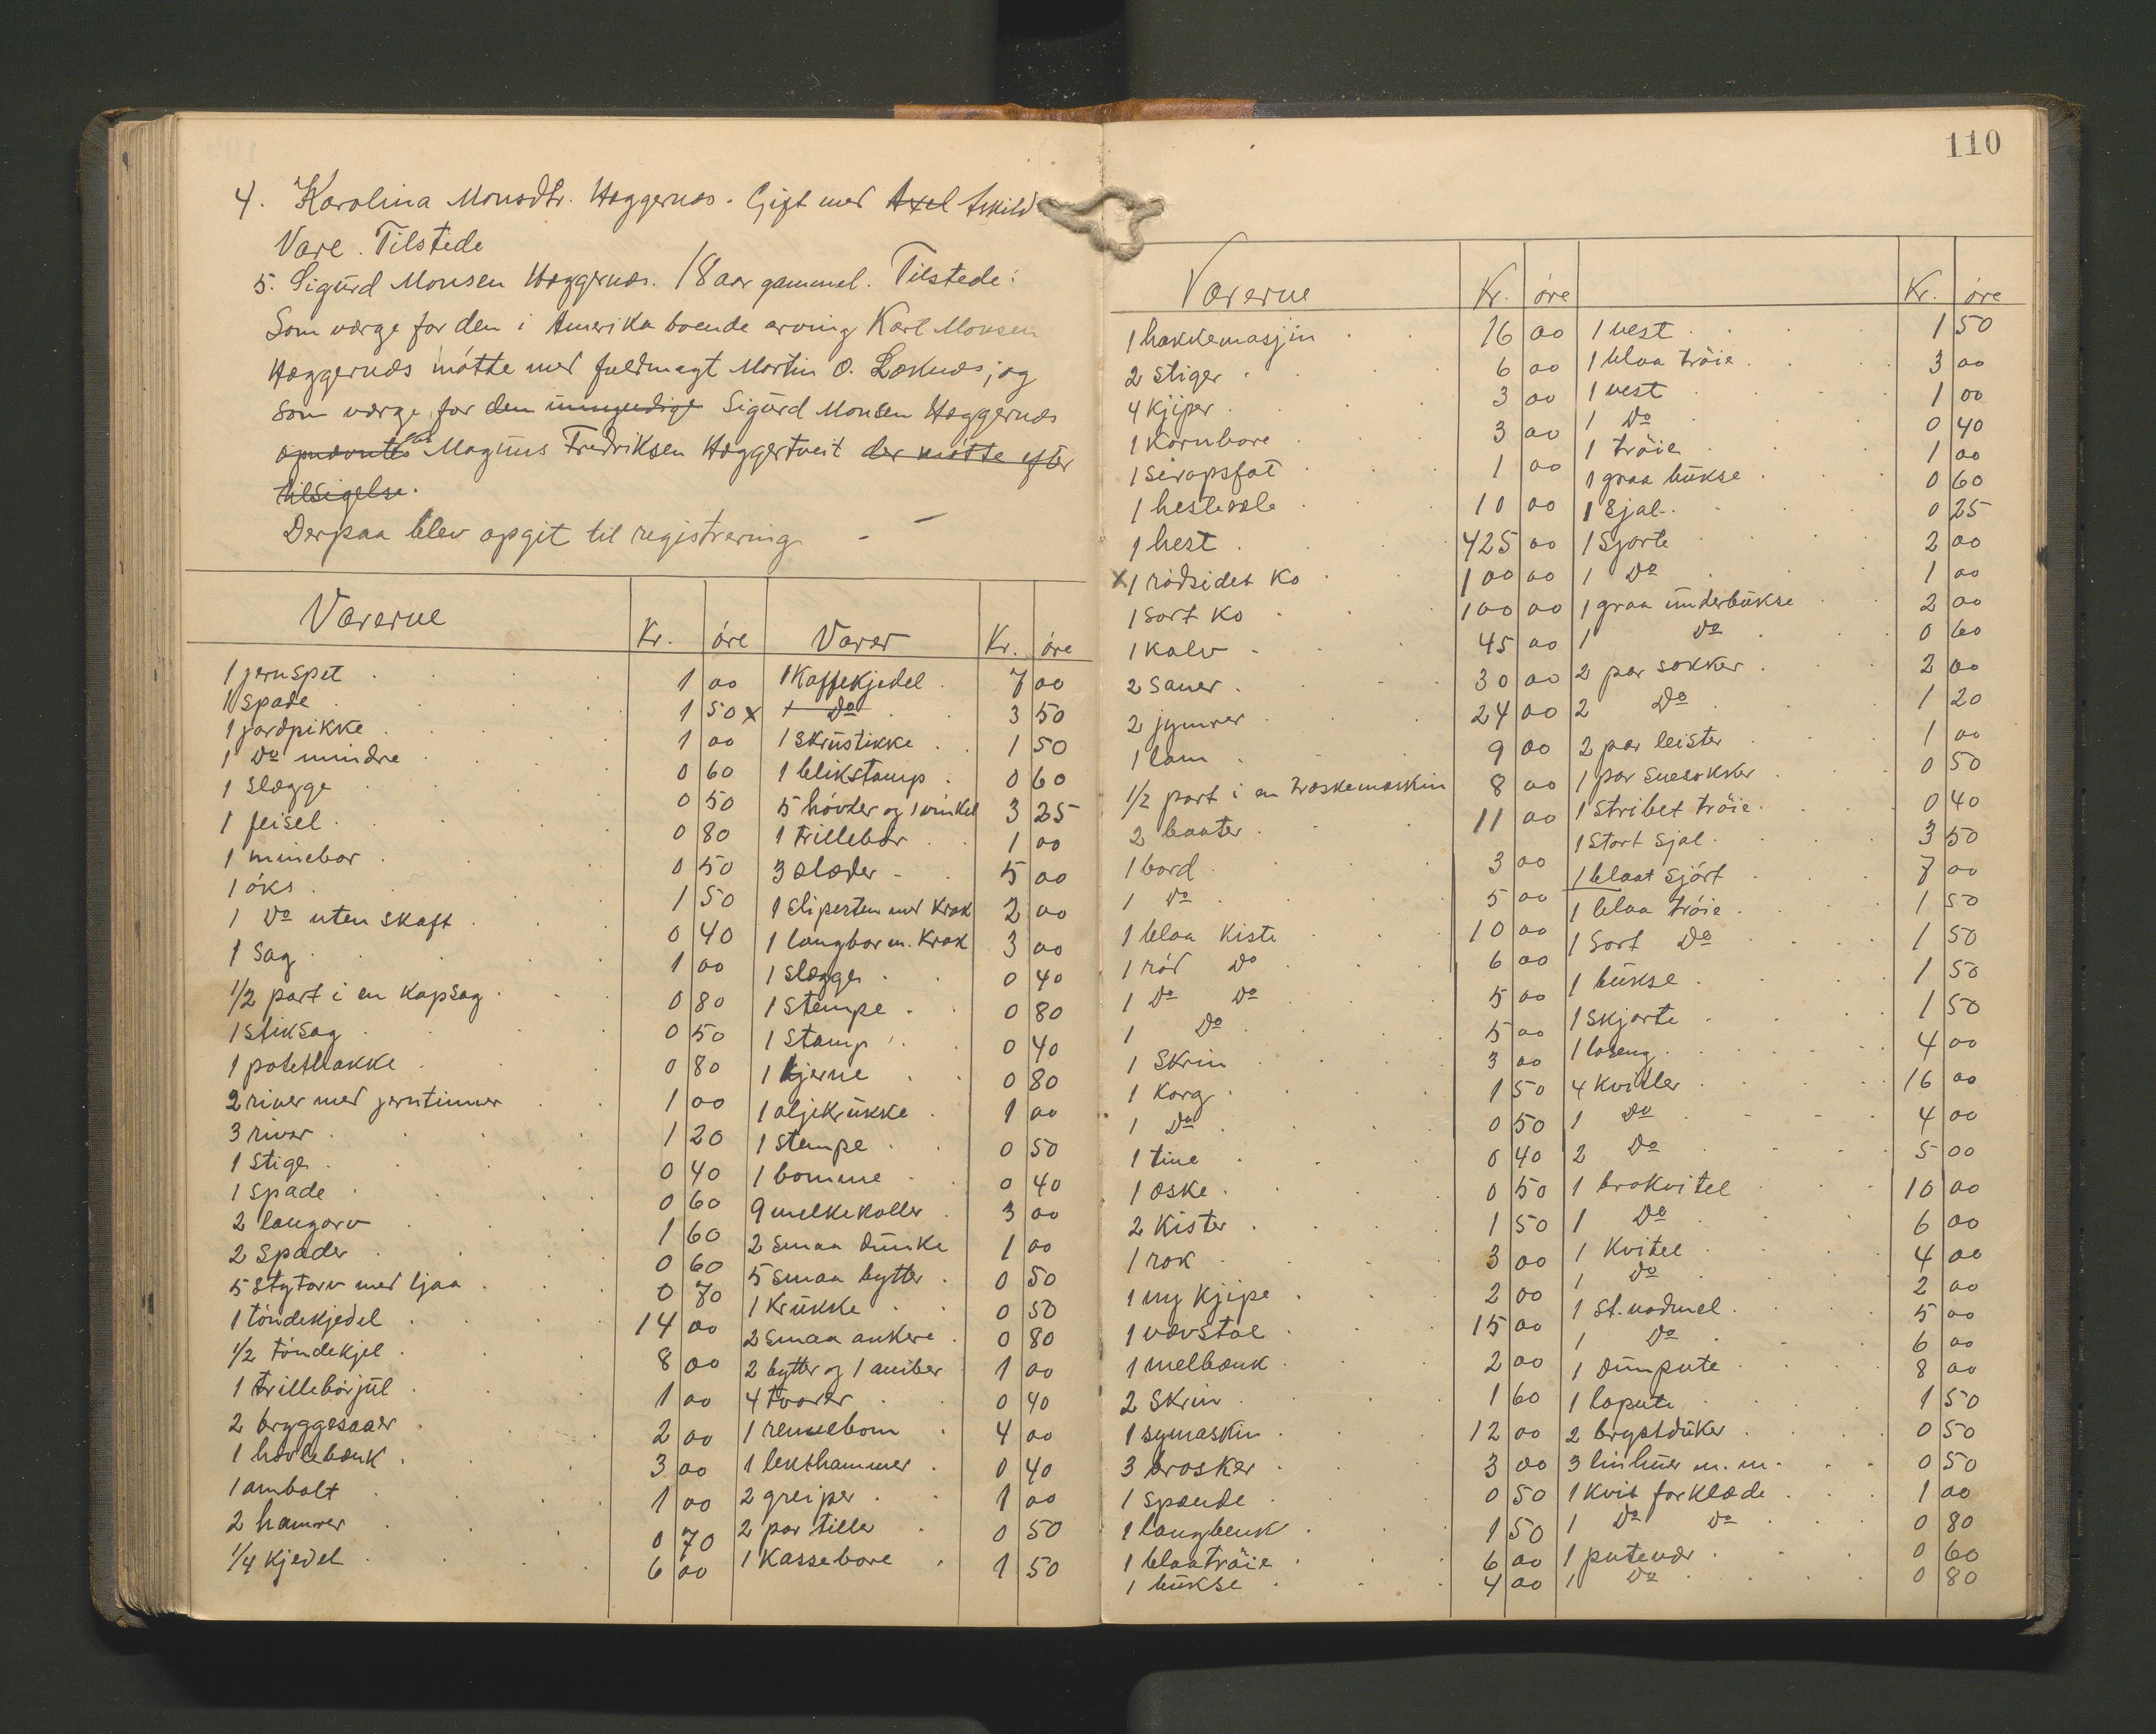 4. Karolina Monsdtr. Hæggernæs. Gift med Axel Askild
Vare. Tilstede
5. Sigurd Monsen Hæggernæs. 18 aar gammel. Tilstede:
Som værge for den i Amerika boende arving Karl Monsen
Hæggernæs møtte med fuldmagt Martin O. Løknæs; og
som værge for den umyndige Sigurd Monsen Hæggernæs
opnævntes Magnus Fredriksen Hæggertveit der møtte efter
tilsigelse.
Derpaa blev opgit til registrering
Varerne Kr. øre Varer Kr. øre
1 jernspet 1 00 1 Kaffekjedel 7 00
1 spade 1 50 x 1 Do 3 50
1 jordpikke 1 00 1 skrustikke 1 50
1 Do mindre 0 60 1 blikstamp 0 60
1 slægge 0 50 5 høvder og 1 vinkel 3 25
1 feisel 0 80 1 trillebør 1 00
1 minebor 0 50 3 slæder 5 00
1 øks 1 50 1 slipesten med krak 2 00
1 Do uten skaft 0 40 1 langbør m. krak 3 00
1 sag 1 00 1 slægge 0 40
1/2 part i en kapsag 0 80 1 stempe 0 80
1 stiksag 0 50 1 stamp 0 40
1 potethakke 0 80 1 kjerne 0 80
2 river med jerntinner 1 00 1 oljekrukke 1 00
3 river 1 20 1 stempe 0 50
1 stige 0 40 1 bomme 0 40
1 spade 0 60 9 melkekoller 3 00
2 langorv 1 60 2 smaa dunke 1 00
2 spader 0 60 5 smaa bytter 0 50
5 stytorv med ljaa 0 70 1 krukke 0 50
1 tøndekjedel 14 00 2 smaa ankere 0 80
1/2 tøndekjel 8 00 2 bytter og 1 amber 1 00
1 trillebørjul 1 00 4 tvarer 0 40
2 bryggesaaer 2 00 1 remsebom 4 00
1 høvlebænk 3 00 1 lekthammer 0 40
1 ambolt 1 00 2 greiper 1 00
2 hamrer 0 70 2 par tiller 0 50
1/4 kjedel 6 00 1 Kassebøre 1 50
110
Varerne Kr. øre Kr. øre
1 hakkemasjin 16 00 1 vest 1 50
2 stiger 6 00 1 blaa trøie 3 00
4 kjiper 3 00 1 vest 1 00
1 Kornbøre 3 00 1 Do 0 40
1 sirapsfat 1 00 1 trøie 1 00
1 hestesele 10 00 1 graa bukse 0 60
1 hest 425 00 1 sjal 0 25
x 1 rødsidet ko 100 00 1 sjorte 2 00
1 sort ko 100 00 1 Do 1 00
1 kalv 45 00 1 graa underbukse 2 00
2 sauer 30 00 1 Do 0 60
2 jymrer 24 00 2 par sokker 2 00
1 lam 9 00 2 Do 1 20
1/2 part i en træskemaskin 8 00 2 par leister 1 00
2 baater 11 00 1 par snesokker 0 50
1 bord 3 00 1 stribet trøie 0 40
1 Do 5 00 1 stort sjal 3 50
1 blaa kiste 10 00 1 blaat sjørt 7 00
1 rød Do 6 00 1 blaa trøie 1 50
1 Do Do 5 00 1 sort Do 1 50
1 Do 5 00 1 bukse 1 50
1 skrin 3 00 1 skjorte 1 50
1 korg 1 50 1 laseng 4 00
1 Do 0 50 4 kvitler 16 00
1 tine 0 40 1 Do 4 00
1 æske 0 50 2 Do 5 00
2 kister 1 50 1 brokvitel 10 00
1 rok 3 00 1 Do 6 00
1 ny kjipe 2 00 1 kvitel 4 00
1 vævstol 15 00 1 Do 2 00
1 melbænk 2 00 1 st. vadmel 5 00
2 skrin 1 60 1 Do 6 00
1 symaskin 12 00 1 dunpute 8 00
3 brasker 3 00 1 lapute 1 50
1 spænde 0 50 2 brystduker 0 50
1 langbenk 1 50 3 linhuer m. m. 0 50
1 blaatrøie 6 00 1 kvit forklæde 1 00
1 bukse 4 00 1 Do Do 0 80
1 putevar 0 60
1 Do 0 80